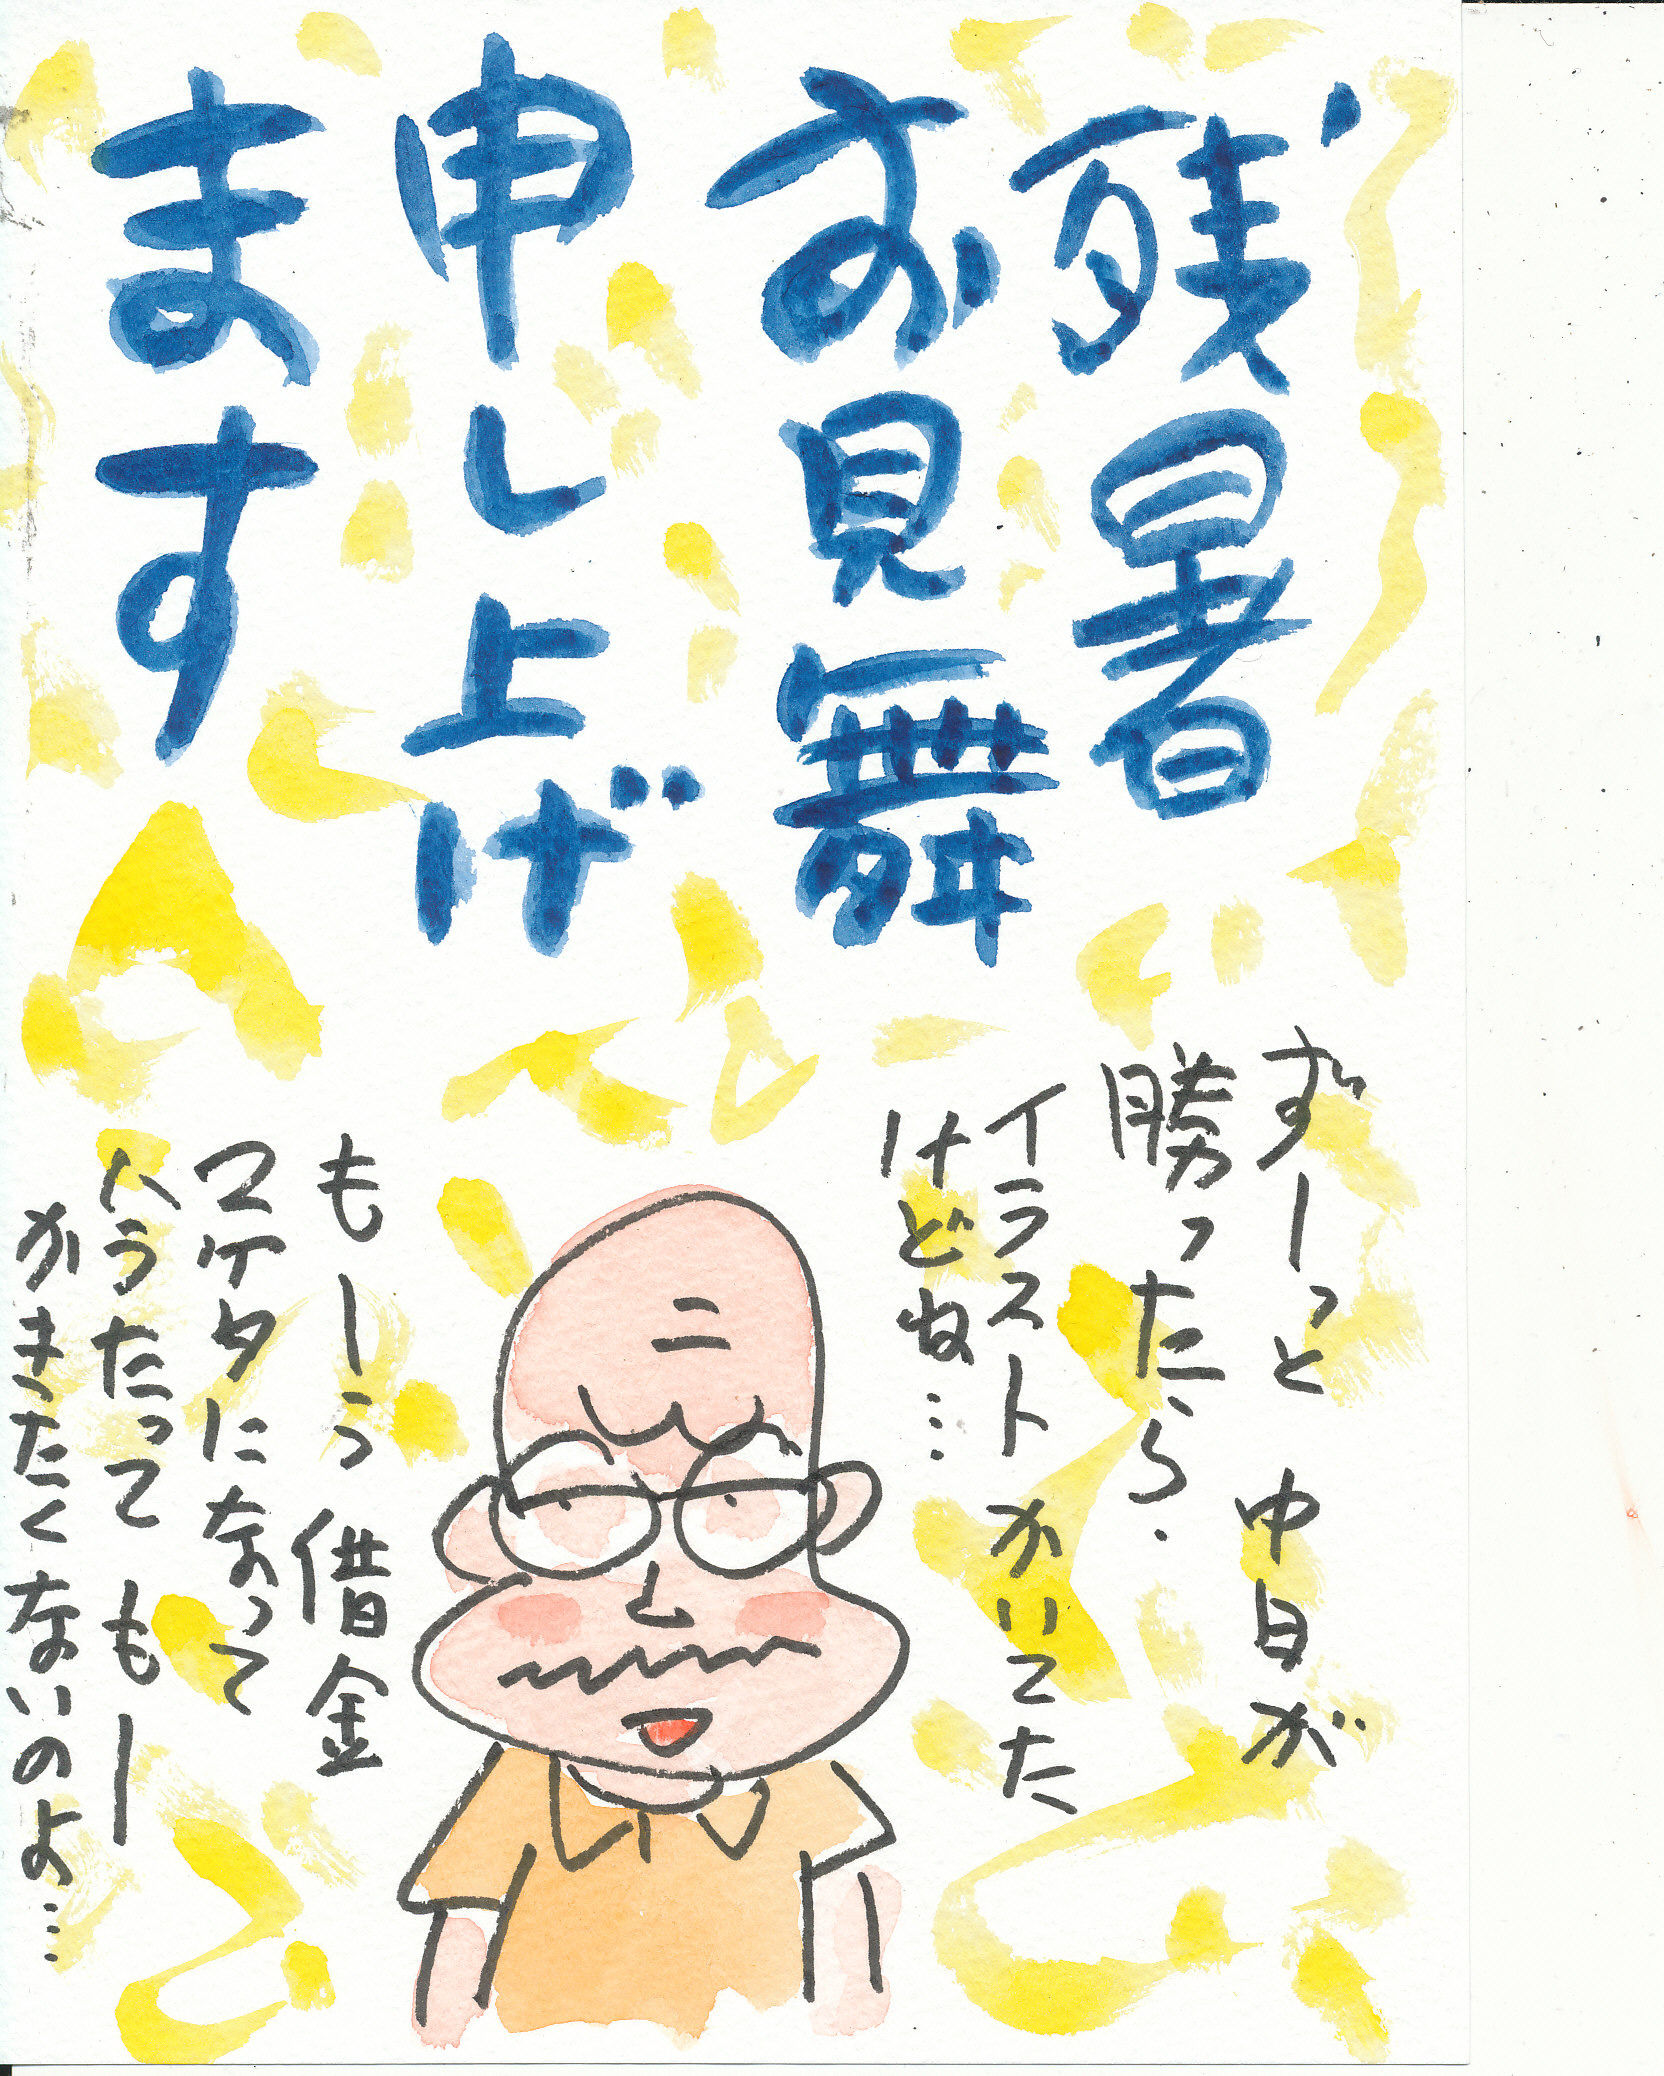 残暑
お見舞
申し上げ
ます
ずーっと 中日が
勝ったら、
イラスト かいてた
けどね…
もーう 借金
マケタになって
へうたって もー
かきたくないのよ…